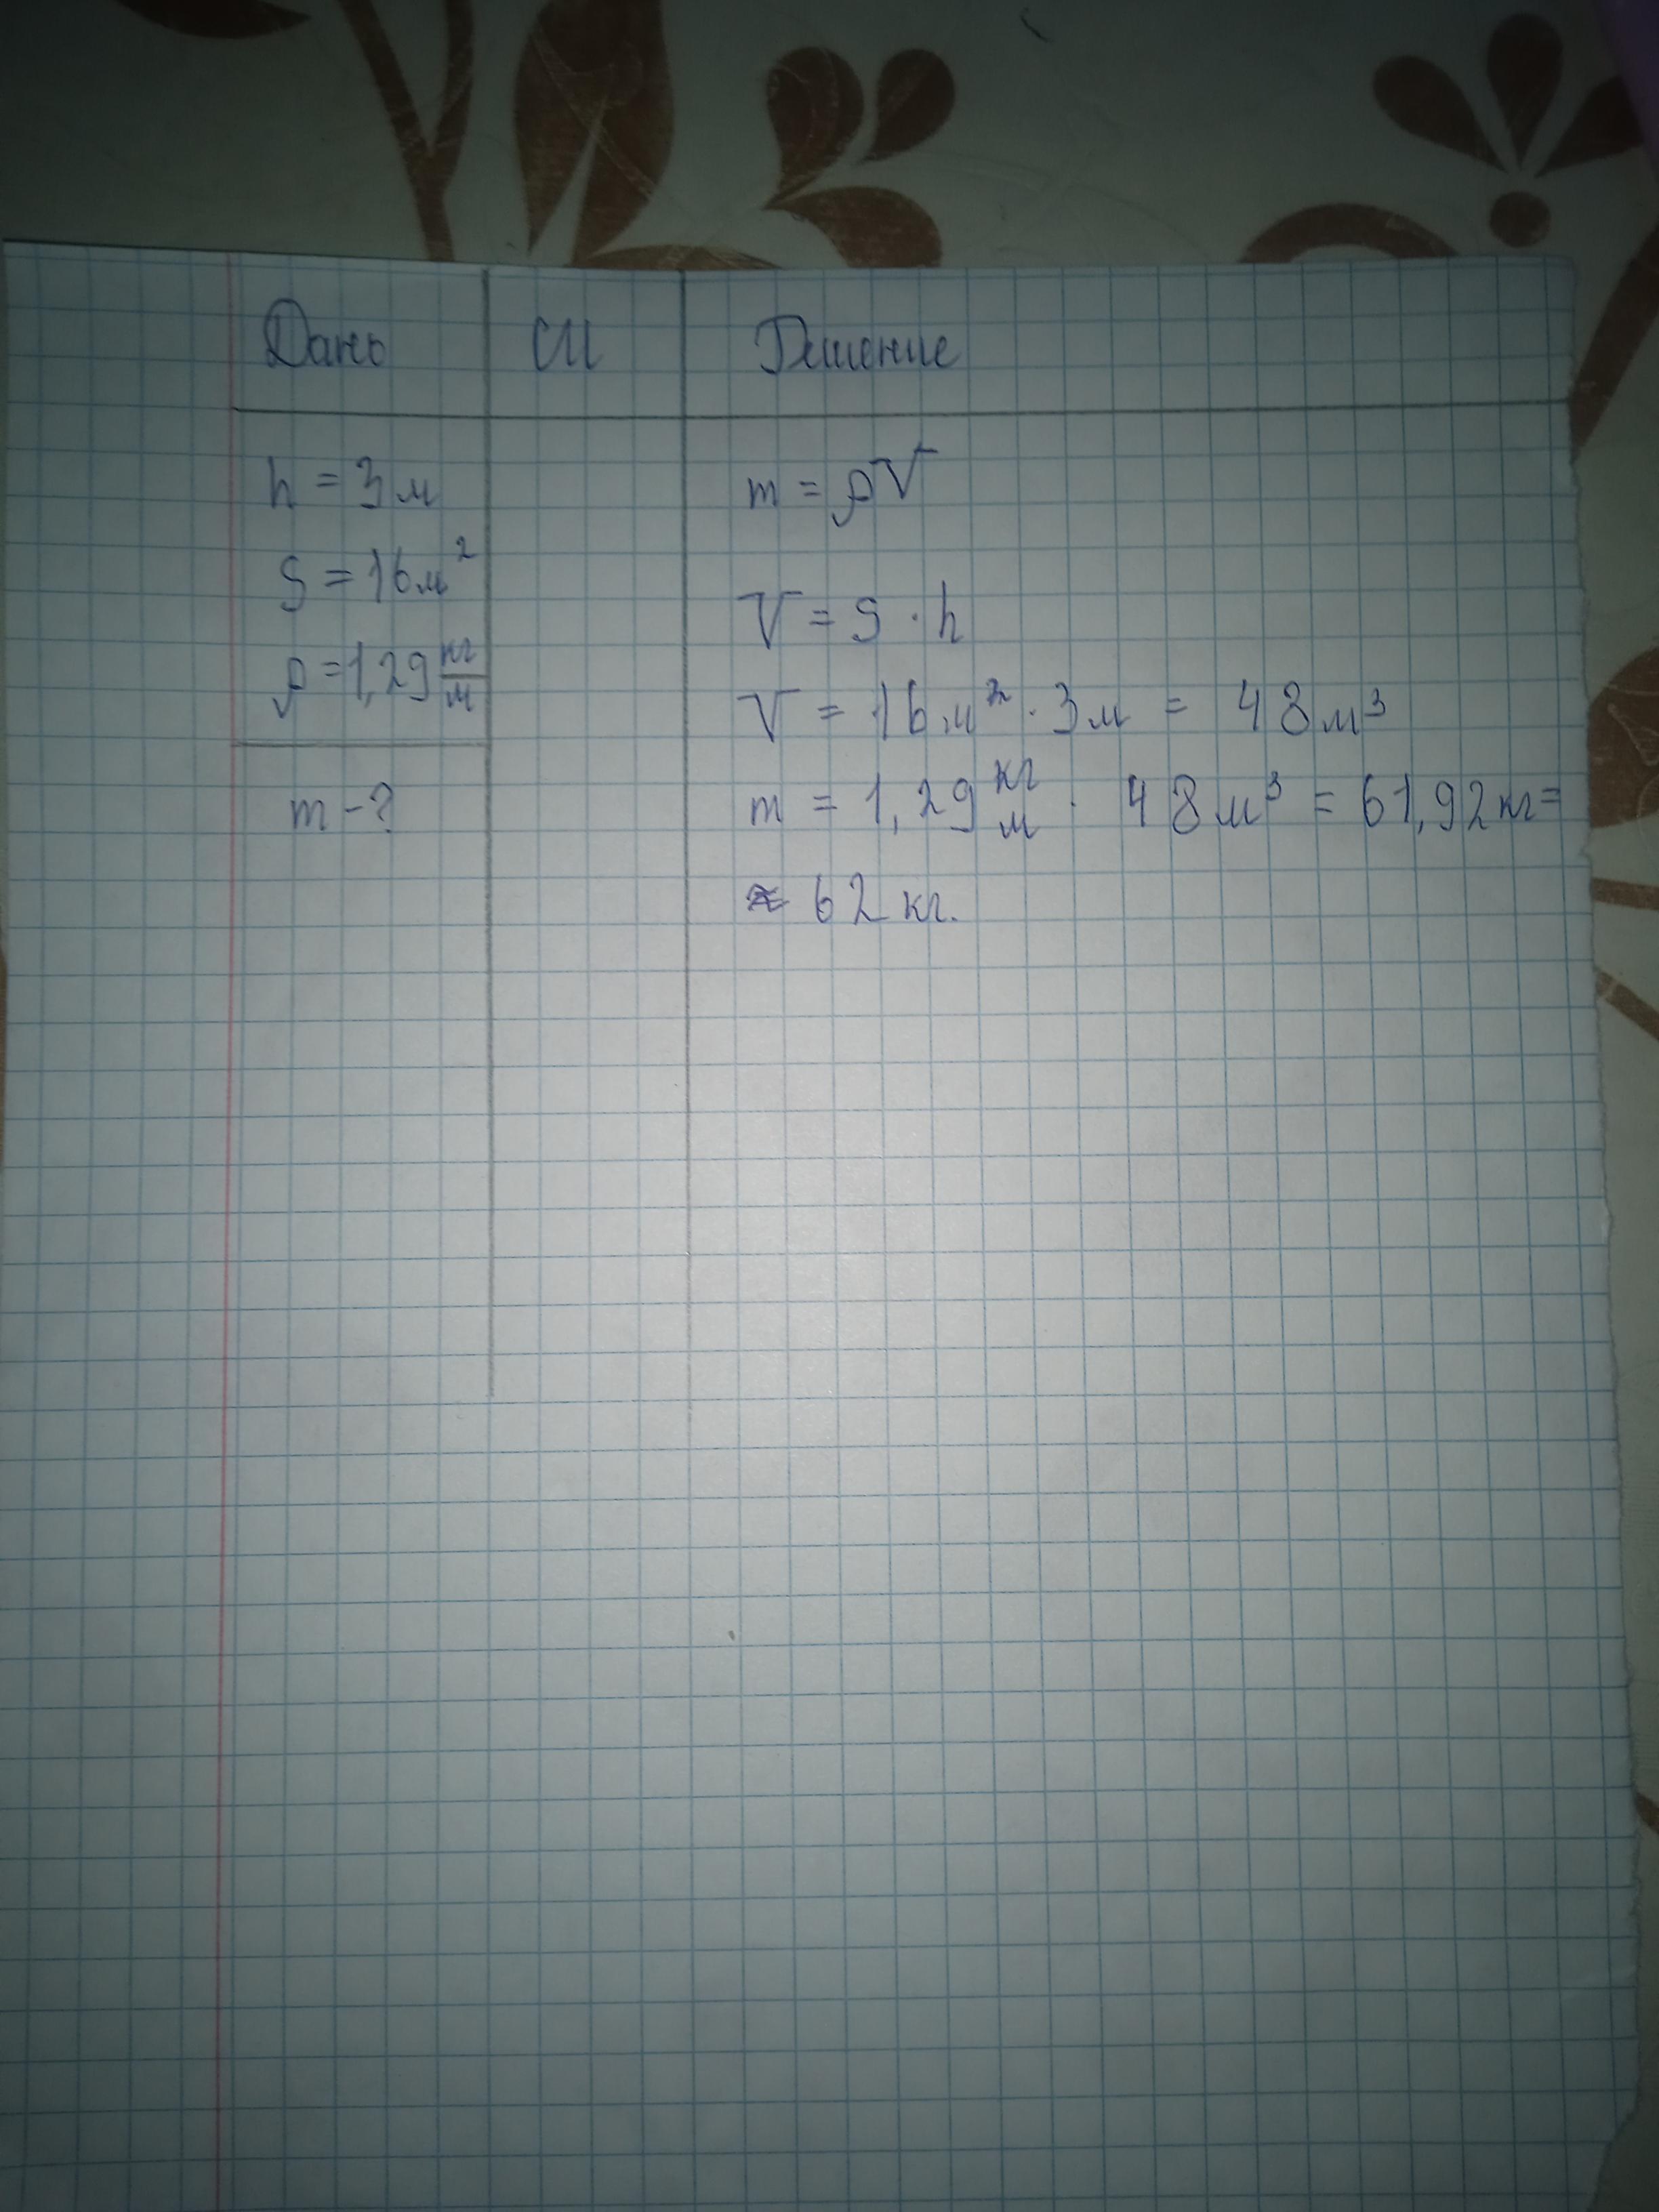 Дано СИ Решение
h = 3 м
S = 16 м²
ρ = 1,29 кг/м
m - ?
m = ρV
V = S · h
V = 16 м² · 3 м = 48 м³
m = 1,29 кг/м · 48 м³ = 61,92 кг =
≈ 62 кг.